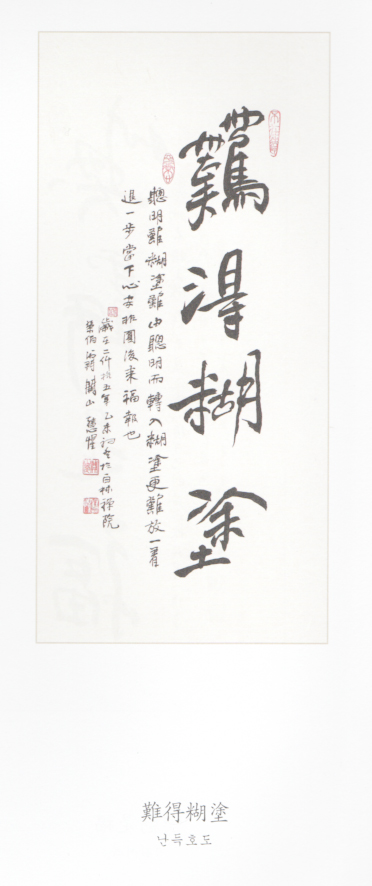 難得糊塗
聰明難糊塗難由聰明而轉入糊塗更難放一著
退一步當下心安非圖後來福報也
歲在二仟拾五年乙未初冬於百林禪院
難得糊塗
난득호도